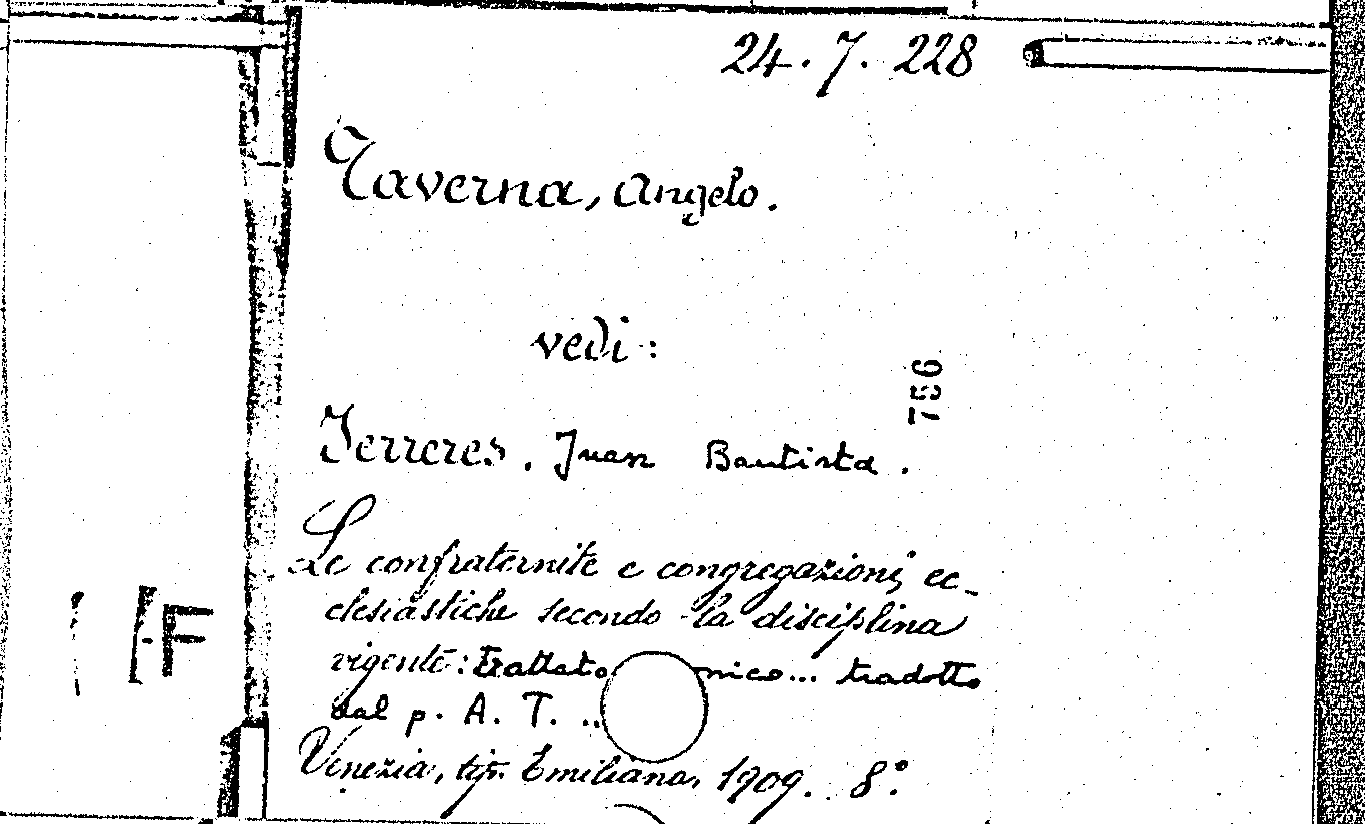 24.7.228
Taverna, Angelo.
vedi:
756
Ferreres, Juan Bautista.
Le confraternite e congregazioni ec-
clesiastiche secondo la disciplina
vigente: trattato nico... tradotto
dal p. A. T. ..
Venezia, tip. Emiliana, 1909. 8°.
F